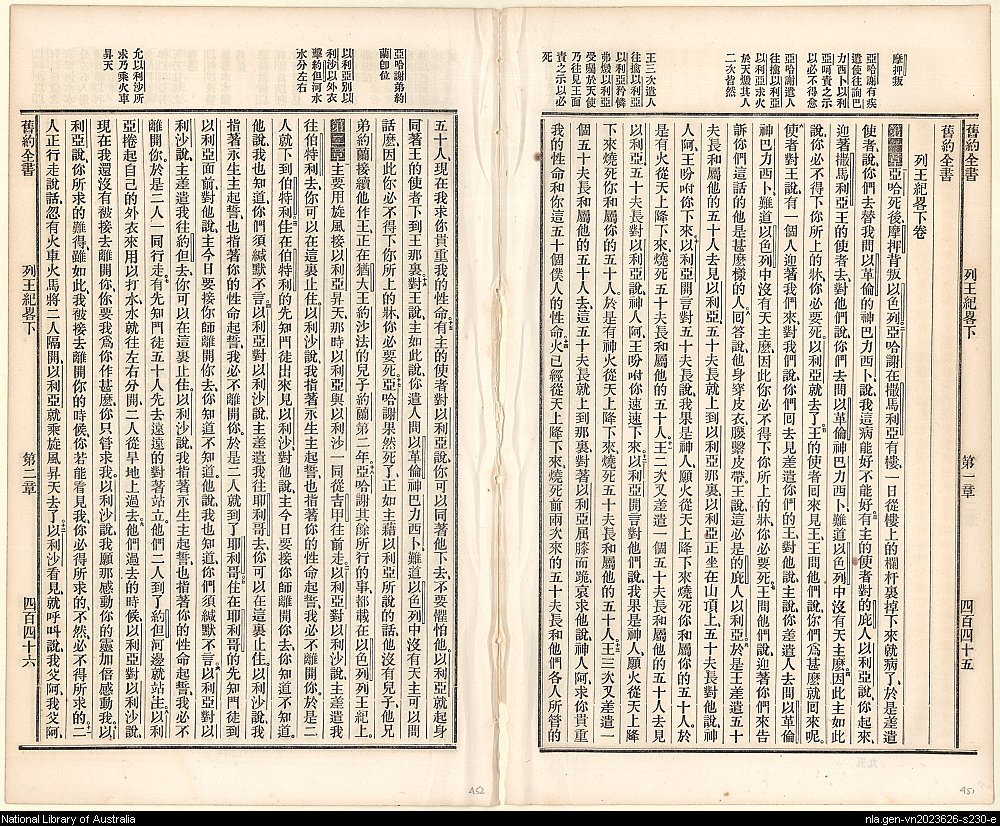 舊約全書　列王紀畧下　第一章　四百四十五
摩押叛
亞哈謝有疾
遣使往詢巴
力西卜以利
亞呵責之示
以必不得愈
亞哈謝遣人
往擒以利亞
以利亞求火
於天燬其人
二次皆然
王三次遣人
往擒以利亞
以利亞矜憐
弗燬以利亞
受屬於天使
乃往見王面
責之示以必
死
舊約全書
列王紀畧下卷
第一章 亞哈死後、摩押背叛以色列。亞哈謝在撒馬利亞有樓、一日從樓上的欄杆裏掉下來就病了、於是差遣
使者、說、你們去替我問以革倫的神巴力西卜、說、我這病能好不能好。有主的使者對的庇人以利亞說、你起來、
迎著撒馬利亞王的使者去、對他們說、你們去問以革倫神巴力西卜、難道以色列中沒有天主麽。因此主如此
說、你必不得下你所上的牀、你必要死。以利亞就去了。王的使者囘來見王、王問他們說、你們爲甚麽就囘來呢。
使者對王說、有一個人迎著我們來、對我們說、你們囘去見差遣你們的王、對他說、主說、你差遣人去問以革倫
神巴力西卜、難道以色列中沒有天主麽、因此你必不得下你所上的牀、你必要死。王問他們說、迎著你們來告
訴你們這話的、他是甚麽樣的人。囘答說、他身穿皮衣、腰繫皮帶。王說、這必是的庇人以利亞。於是王差遣五十
夫長和屬他的五十人去見以利亞、五十夫長就上到以利亞那裏、以利亞正坐在山頂上、五十夫長對他說、神
人阿、王吩咐你下來。以利亞開言對五十夫長說、我果是神人、願火從天上降下來、燒死你和屬你的五十人。於
是有火從天上降下來、燒死五十夫長和屬他的五十人。王二次又差遣一個五十夫長和屬他的五十人去見
以利亞、五十夫長對以利亞說、神人阿、王吩咐你速速下來。以利亞開言對他們說、我果是神人、願火從天上降
下來、燒死你和你屬的五十人。於是有神火從天上降下來、燒死五十夫長和屬他的五十人。王三次又差遣一
個五十夫長和屬他的五十人去、這五十夫長就上到那裏、對著以利亞屈膝而跪、哀求他說、神人阿、求你貴重
我的性命和你這五十個僕人的性命。火已經從天上降下來、燒死前兩次來的五十夫長和他們各人所管的
亞哈謝弟約
蘭卽位
以利亞別以
利沙以外衣
擊約但河水
水分左右
允以利沙所
求乃乘火車
昇天
五十人、現在我求你貴重我的性命。有主的使者對以利亞說、你可以同著他下去、不要懼怕他。以利亞就起身
同著王的使者下到王那裏、對王說、主如此說、你遣人問以革倫神巴力西卜、難道以色列中沒有天主可以問
話麽、因此你必不得下你所上的牀、你必要死。亞哈謝果然死了、正如主藉以利亞所說的話、他沒有兒子、他兄
弟約蘭接續他作王、正在猶大王約沙法的兒子約蘭第二年。亞哈謝其餘所行的事、都載在以色列列王紀上。
第二章 主要用旋風接以利亞昇天、那時以利亞與以利沙一同從吉甲往前走。以利亞對以利沙說、主差遣我
往伯特利去、你可以在這裏止住。以利沙說、我指著永生主起誓、也指著你的性命起誓、我必不離開你。於是二
人就下到伯特利。住在伯特利的先知門徒出來見以利沙、對他說、主今日要接你師離開你去、你知道不知道、
他說、我也知道、你們須緘默不言。以利亞對以利沙說、主差遣我往耶利哥去、你可以在這裏止住。以利沙說、我
指著永生主起誓、也指著你的性命起誓、我必不離開你。於是二人就到了耶利哥。住在耶利哥的先知門徒到
以利亞面前、對他說、主今日要接你師離開你去、你知道不知道。他說、我也知道、你們須緘默不言。以利亞對以
利沙說、主差遣我往約但去、你可以在這裏止住。以利沙說、我指著永生主起誓、也指著你的性命起誓、我必不
離開你。於是二人一同行走。有先知門徒五十人先去遠遠的對著站立、他們二人到了約但河邊就站住。以利
亞捲起自己的外衣來、用以打水、水就往左右分開、二人從旱地上過去。他們過去的時候、以利亞對以利沙說、
現在我還沒有被接去離開你、你要我爲你作甚麽、你只管求我。以利沙說、我願那感動你的靈、加倍感動我。以
利亞說、你所求的難得、雖如此、我被接去離開你的時候、你若能看見我、你必得所求的、不然、必不得所求的。二
人正行走說話、忽有火車火馬將二人隔開、以利亞就乘旋風昇天去了。以利沙看見、就呼叫說、我父阿、我父阿、
舊約全書　列王紀畧下　第二章　四百四十六
452
451
National Library of Australia
nla.gen-vn2023626-s230-e